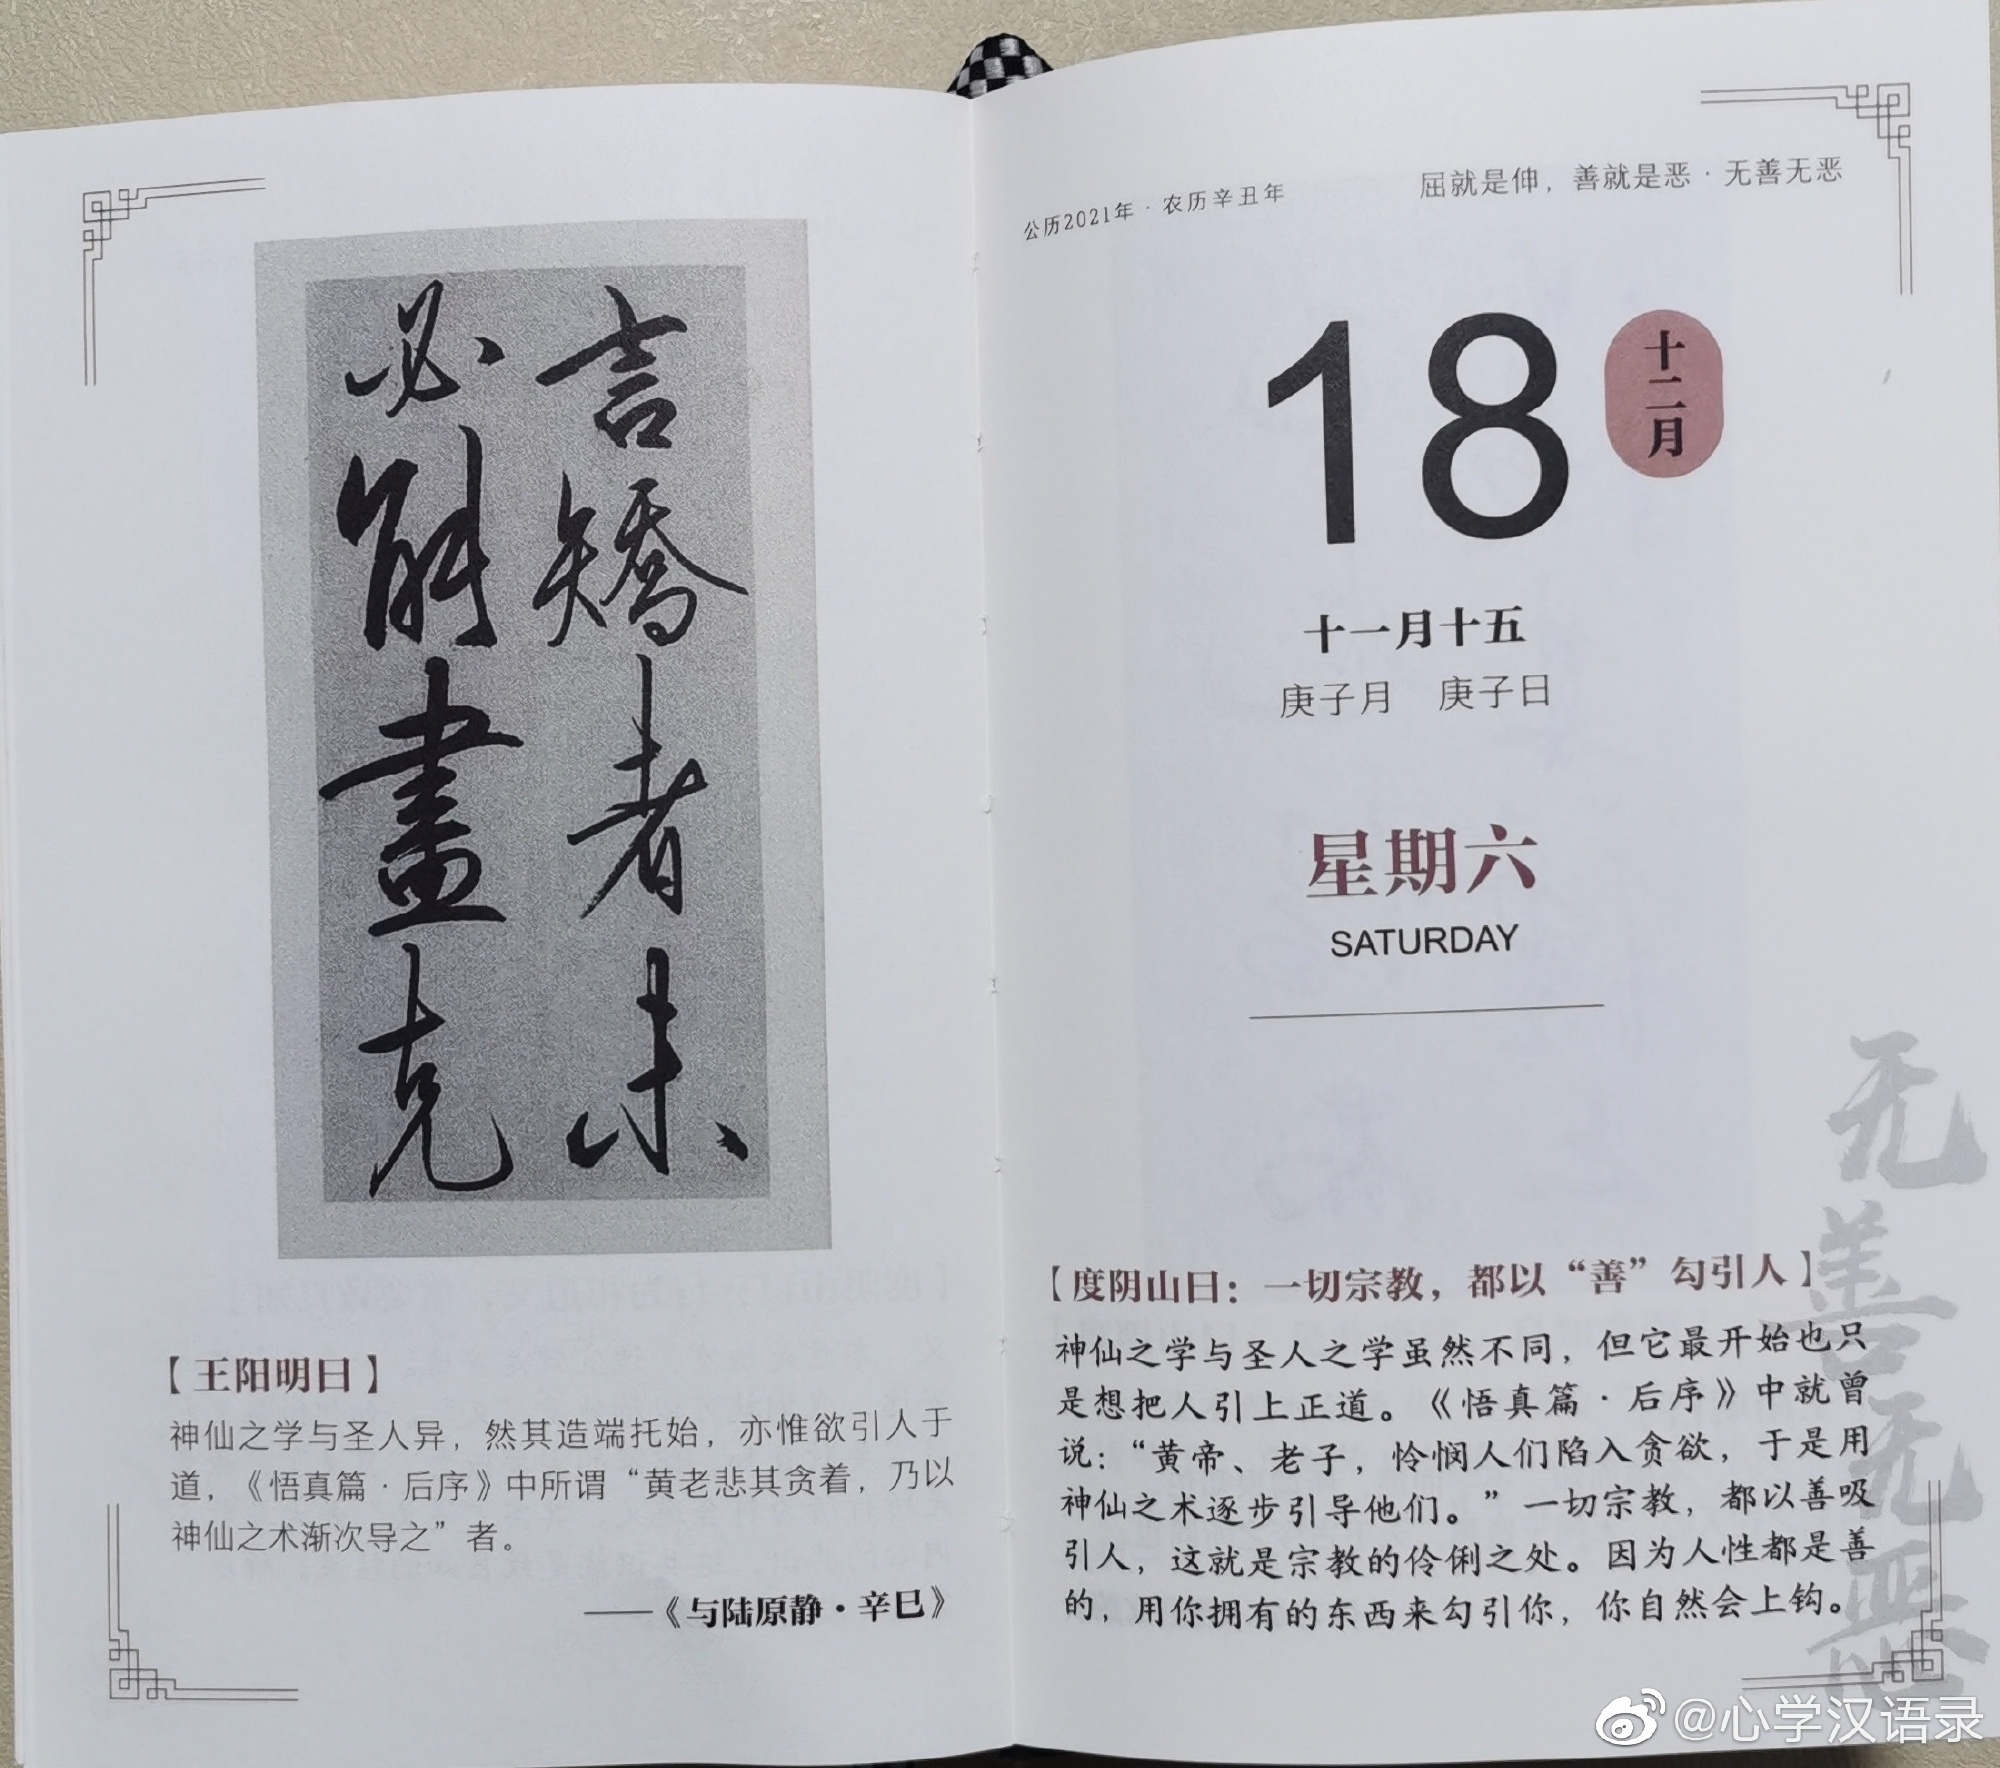 言矯者未
必能盡克
【王阳明曰】
神仙之学与圣人异，然其造端托始，亦惟欲引人于
道，《悟真篇·后序》中所谓“黄老悲其贪着，乃以
神仙之术渐次导之”者。
——《与陆原静·辛巳》
公历2021年·农历辛丑年
屈就是伸，善就是恶·无善无恶
18
十二月
十一月十五
庚子月 庚子日
星期六
SATURDAY
【度阴山曰：一切宗教，都以“善”勾引人】
神仙之学与圣人之学虽然不同，但它最开始也只
是想把人引上正道。《悟真篇·后序》中就曾
说：“黄帝、老子，怜悯人们陷入贪欲，于是用
神仙之术逐步引导他们。”一切宗教，都以善吸
引人，这就是宗教的伶俐之处。因为人性都是善
的，用你拥有的东西来勾引你，你自然会上钩。
无善无恶
@心学汉语录